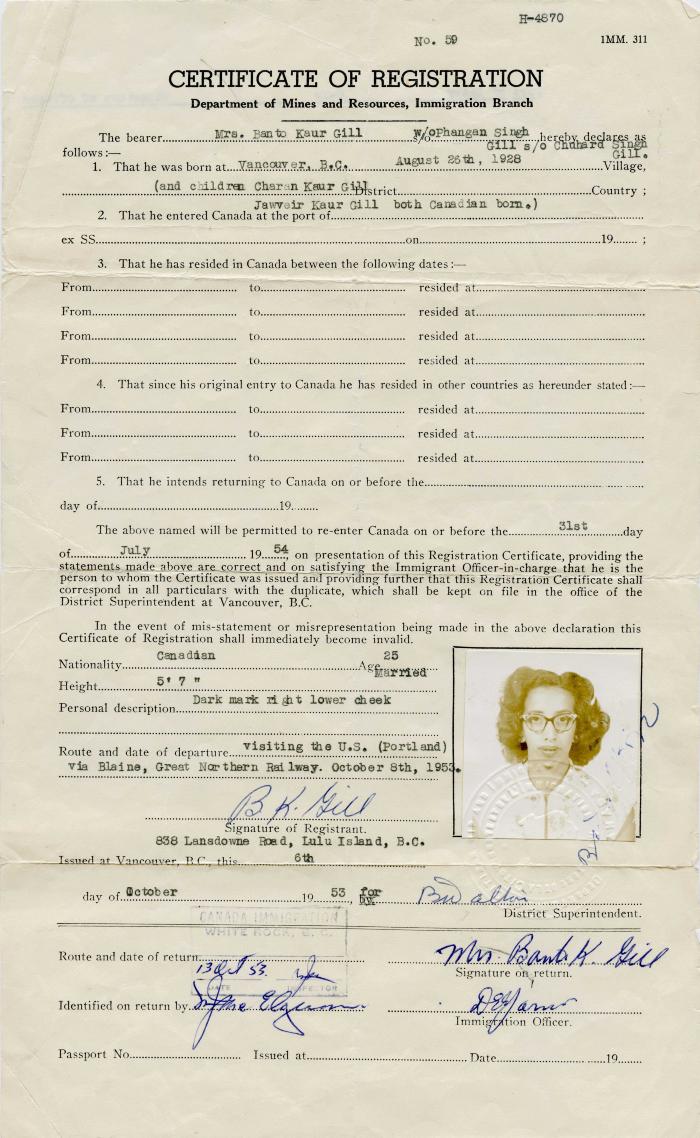 H-4870
No. 59
IMM. 311
CERTIFICATE OF REGISTRATION
Department of Mines and Resources, Immigration Branch
The bearer Mrs. Banto Kaur Gill w/o Phangan Singh hereby declares as
Gill s/o Chuhard Singh
follows:— Gill.
1. That he was born at Vancouver, B.C. August 26th, 1928 Village,
(and children Charan Kaur Gill District Country ;
Jawveir Kaur Gill both Canadian born.)
2. That he entered Canada at the port of
ex SS. on 19 ;
3. That he has resided in Canada between the following dates :—
From to resided at
From to resided at
From to resided at
From to resided at
4. That since his original entry to Canada he has resided in other countries as hereunder stated :—
From to resided at
From to resided at
From to resided at
5. That he intends returning to Canada on or before the
day of 19
The above named will be permitted to re-enter Canada on or before the 31st day
of July 19 54, on presentation of this Registration Certificate, providing the
statements made above are correct and on satisfying the Immigrant Officer-in-charge that he is the
person to whom the Certificate was issued and providing further that this Registration Certificate shall
correspond in all particulars with the duplicate, which shall be kept on file in the office of the
District Superintendent at Vancouver, B.C.
In the event of mis-statement or misrepresentation being made in the above declaration this
Certificate of Registration shall immediately become invalid.
Nationality Canadian Age 25
Married
Height 5' 7 "
Personal description Dark mark right lower cheek
Route and date of departure visiting the U.S. (Portland)
via Blaine, Great Northern Railway. October 8th, 1953.
B K. Gill
Signature of Registrant.
838 Lansdowne Road, Lulu Island, B.C.
Issued at Vancouver, B.C., this 6th
day of October 19 53 for
by
District Superintendent.
CANADA IMMIGRATION
WHITE ROCK, B. C.
Route and date of return
13 Oct 53.
DATE INSPECTOR
Mrs. Banto K. Gill
Signature on return.
Identified on return by
Immigration Officer.
Passport No. Issued at Date 19